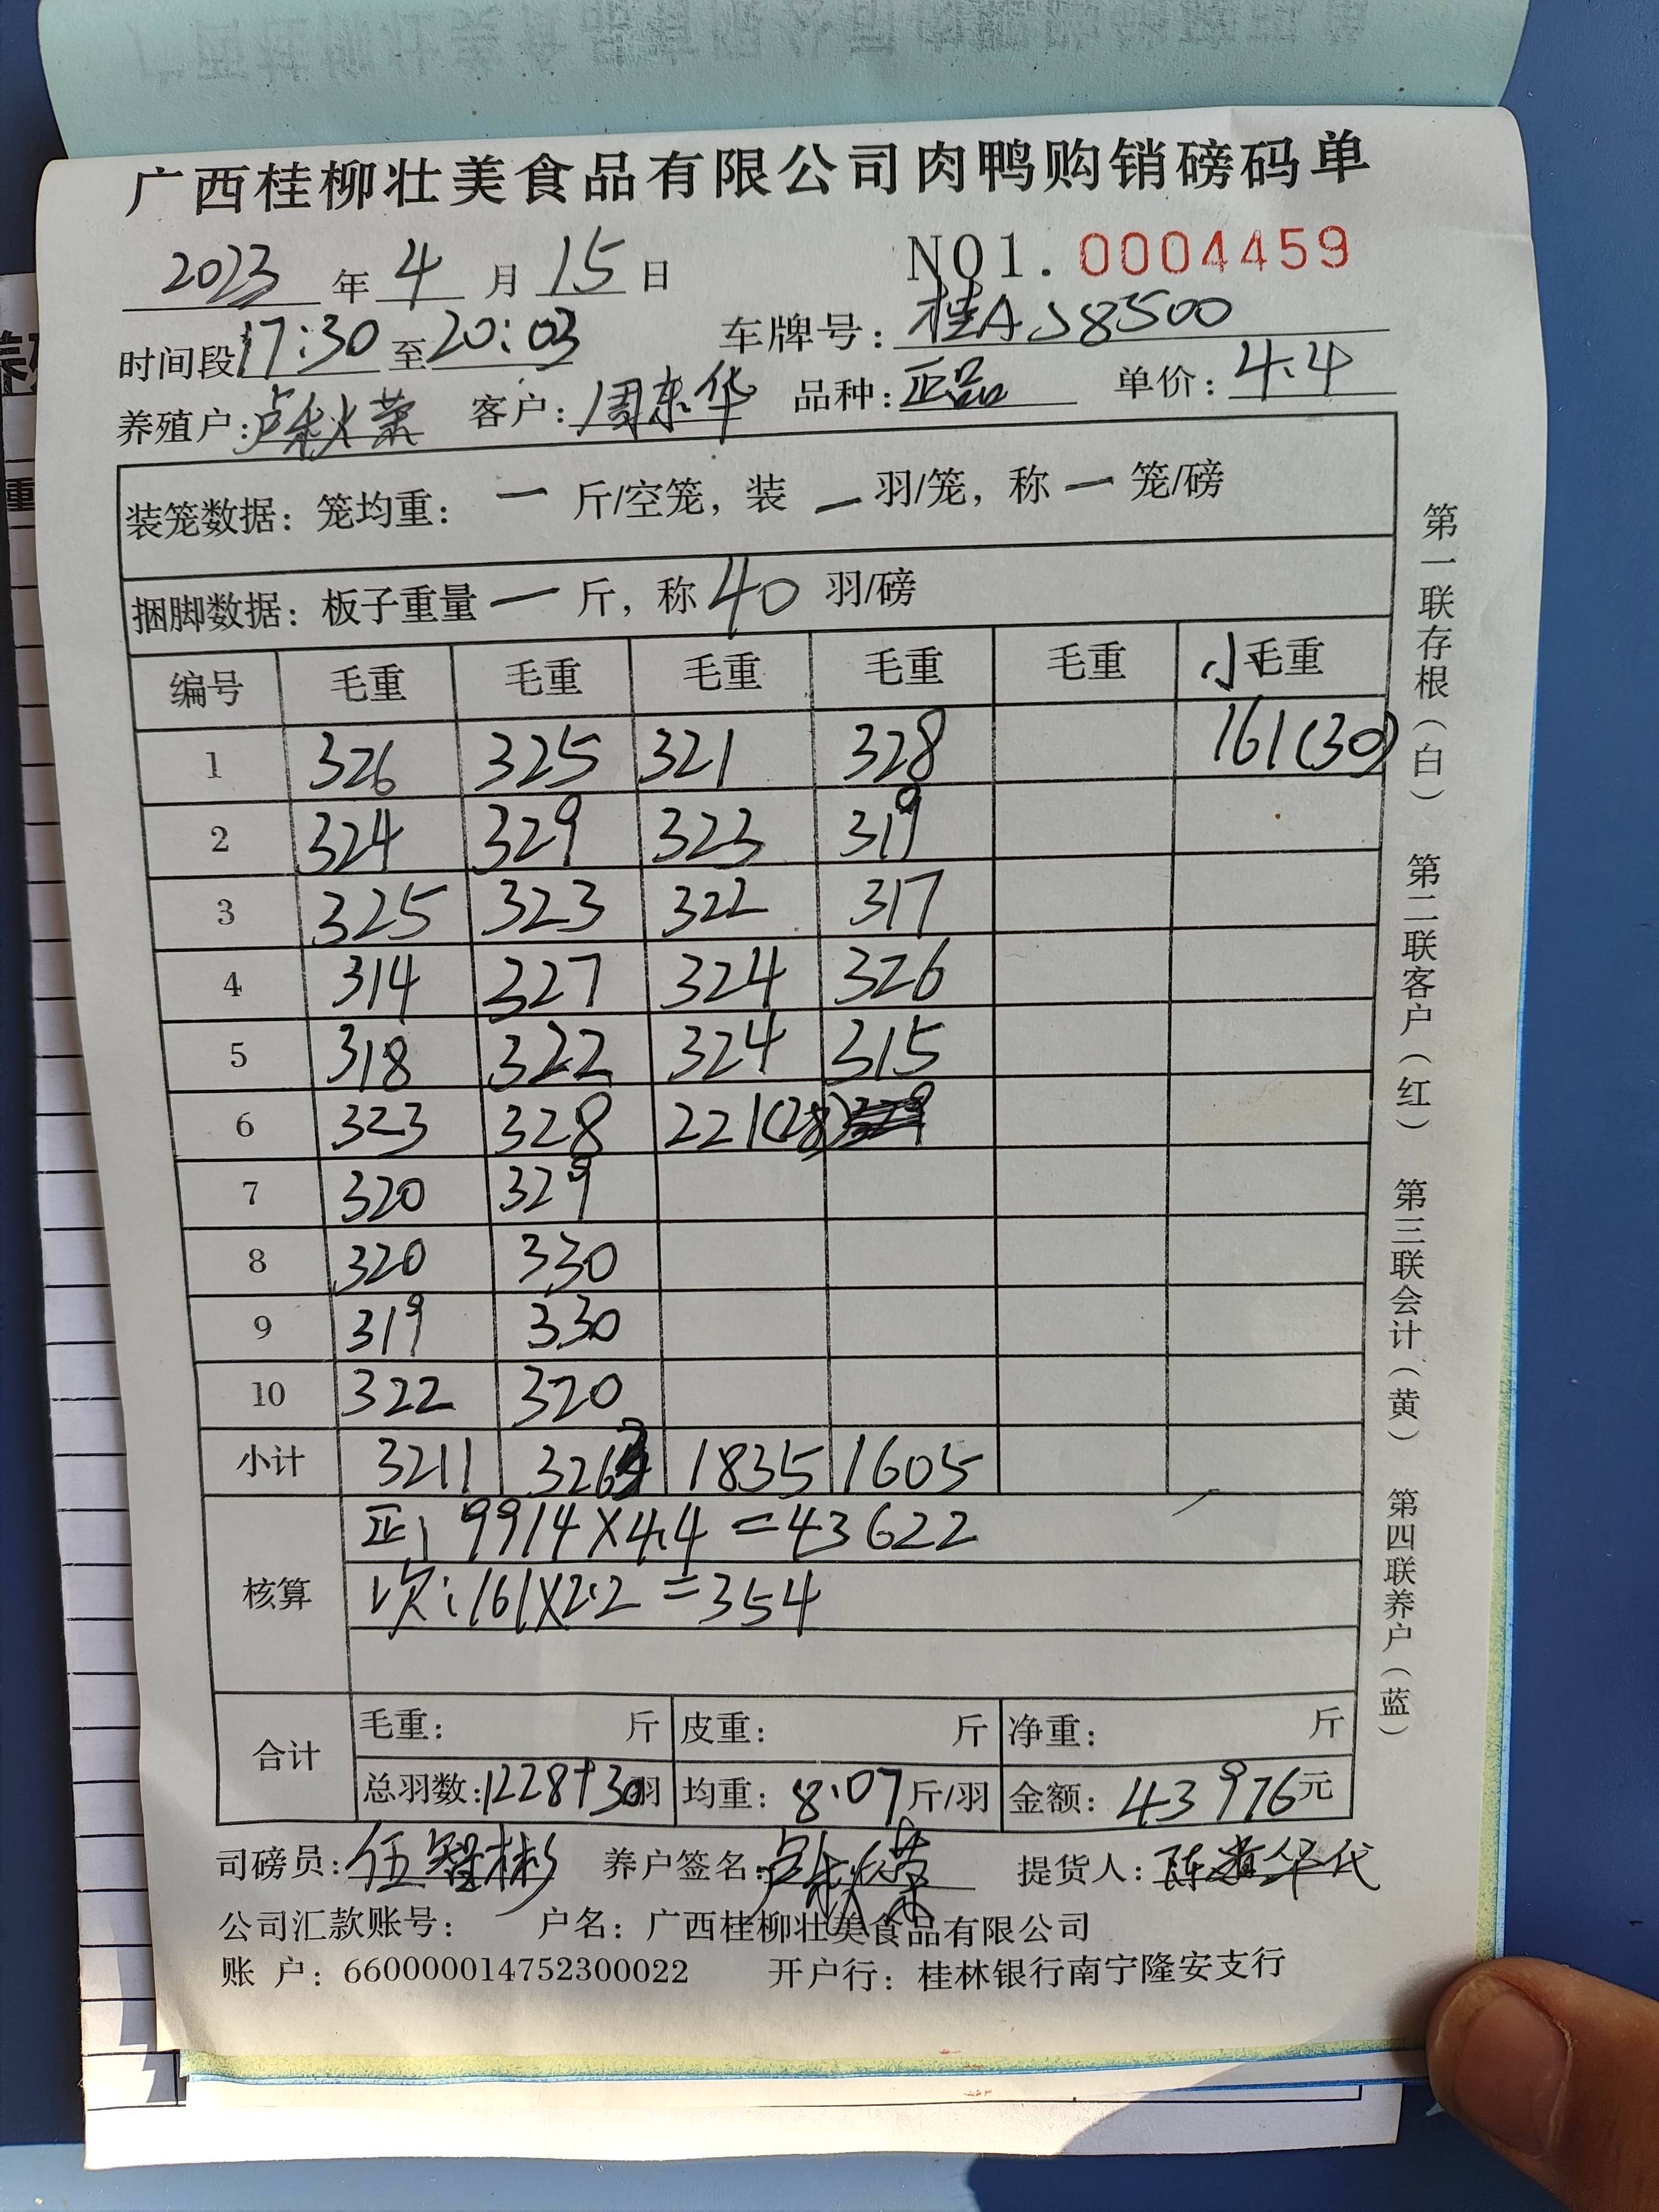 广西桂柳壮美食品有限公司肉鸭购销磅码单
2023 年 4 月 15 日 NO1. 0004459
时间段 17:30 至 20:03 车牌号: 桂AJ8500
养殖户: 卢秋荣 客户: 周东华 品种: 正品 单价: 4.4
装笼数据: 笼均重: 一 斤/空笼, 装 一 羽/笼, 称 一 笼/磅
捆脚数据: 板子重量 一 斤, 称 40 羽/磅
编号 毛重 毛重 毛重 毛重 毛重 小毛重
1 326 325 321 328 161(30)
2 324 329 323 319
3 325 323 322 317
4 314 327 324 326
5 318 322 324 315
6 323 328 221(28)
7 320 329
8 320 330
9 319 330
10 322 320
小计 3211 3263 1835 1605
核算
正: 9914×4.4=43622
次:161×2.2=354
合计
毛重: 斤 皮重: 斤 净重: 斤
总羽数:1228+30羽 均重: 8.07斤/羽 金额: 43976元
司磅员: 伍智彬 养户签名: 卢秋荣 提货人: 陈 华代
公司汇款账号: 户名: 广西桂柳壮美食品有限公司
账 户: 660000014752300022 开户行: 桂林银行南宁隆安支行
第一联存根(白) 第二联客户(红) 第三联会计(黄) 第四联养户(蓝)